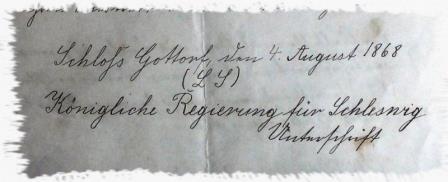 Schloß Gottorf, den 4. August 1868
(L S)
Königliche Regierung für Schleswig
Unterschrift